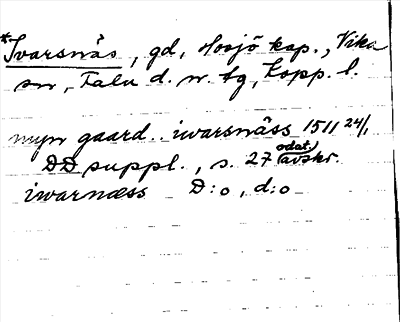 *Ivarsnäs, gd, Hosjö kap., Vika
sn, Falu d. n. tg, Kopp. l.
myn gaard.. iwarsnäss 1511 24/1
DD suppl., s. 27 (odat.) avskr.
iwarnæss D:o, d:o